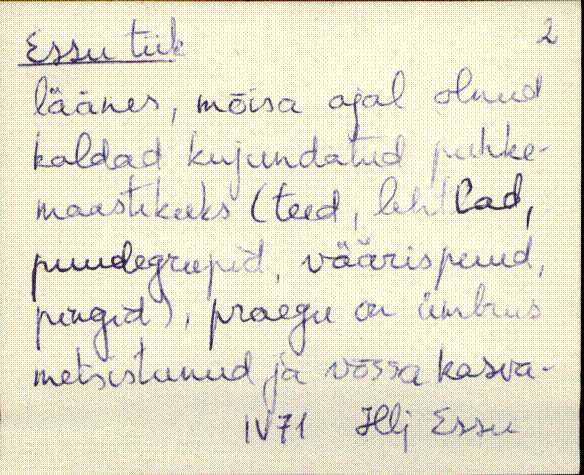 Essu tiik 2
läänes, mõisa ajal olnud
kaldad kujundatud puhke-
maastikuks (teed, lehtlad,
puudegrupid, väärispuud,
pingid), praegu on ümbrus
metsistunud ja võssa kasva-
IV 71 Hlj Essu